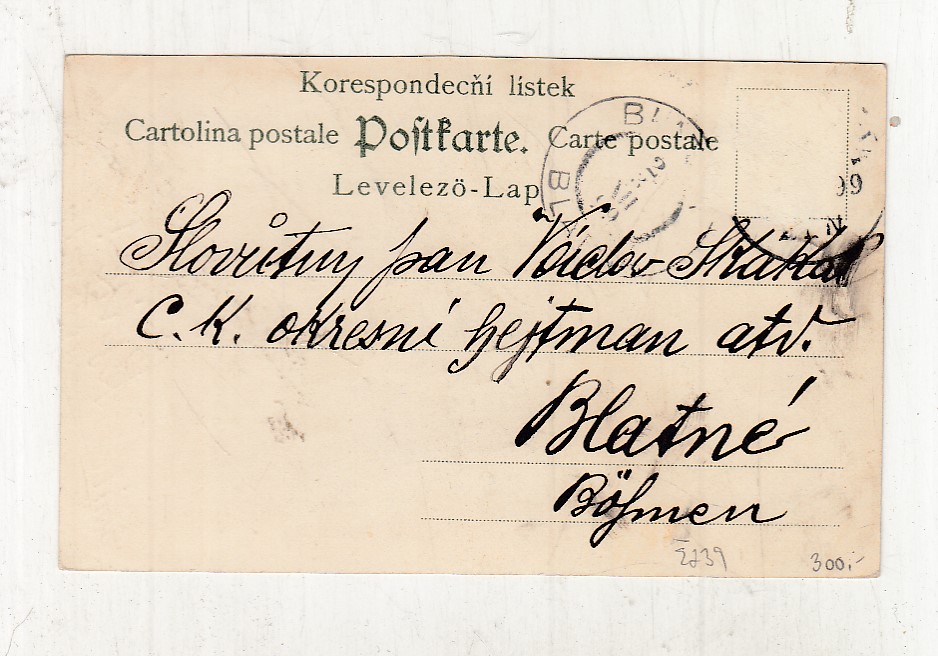 Korespondecňí lístek
Cartolina postale Poſtkarte. Carte postale
Levelezö-Lap
99
Slovůtny pan Václav Skákal
C. K. okresní hejtman atd.
Blatné
Böhmen
300,-